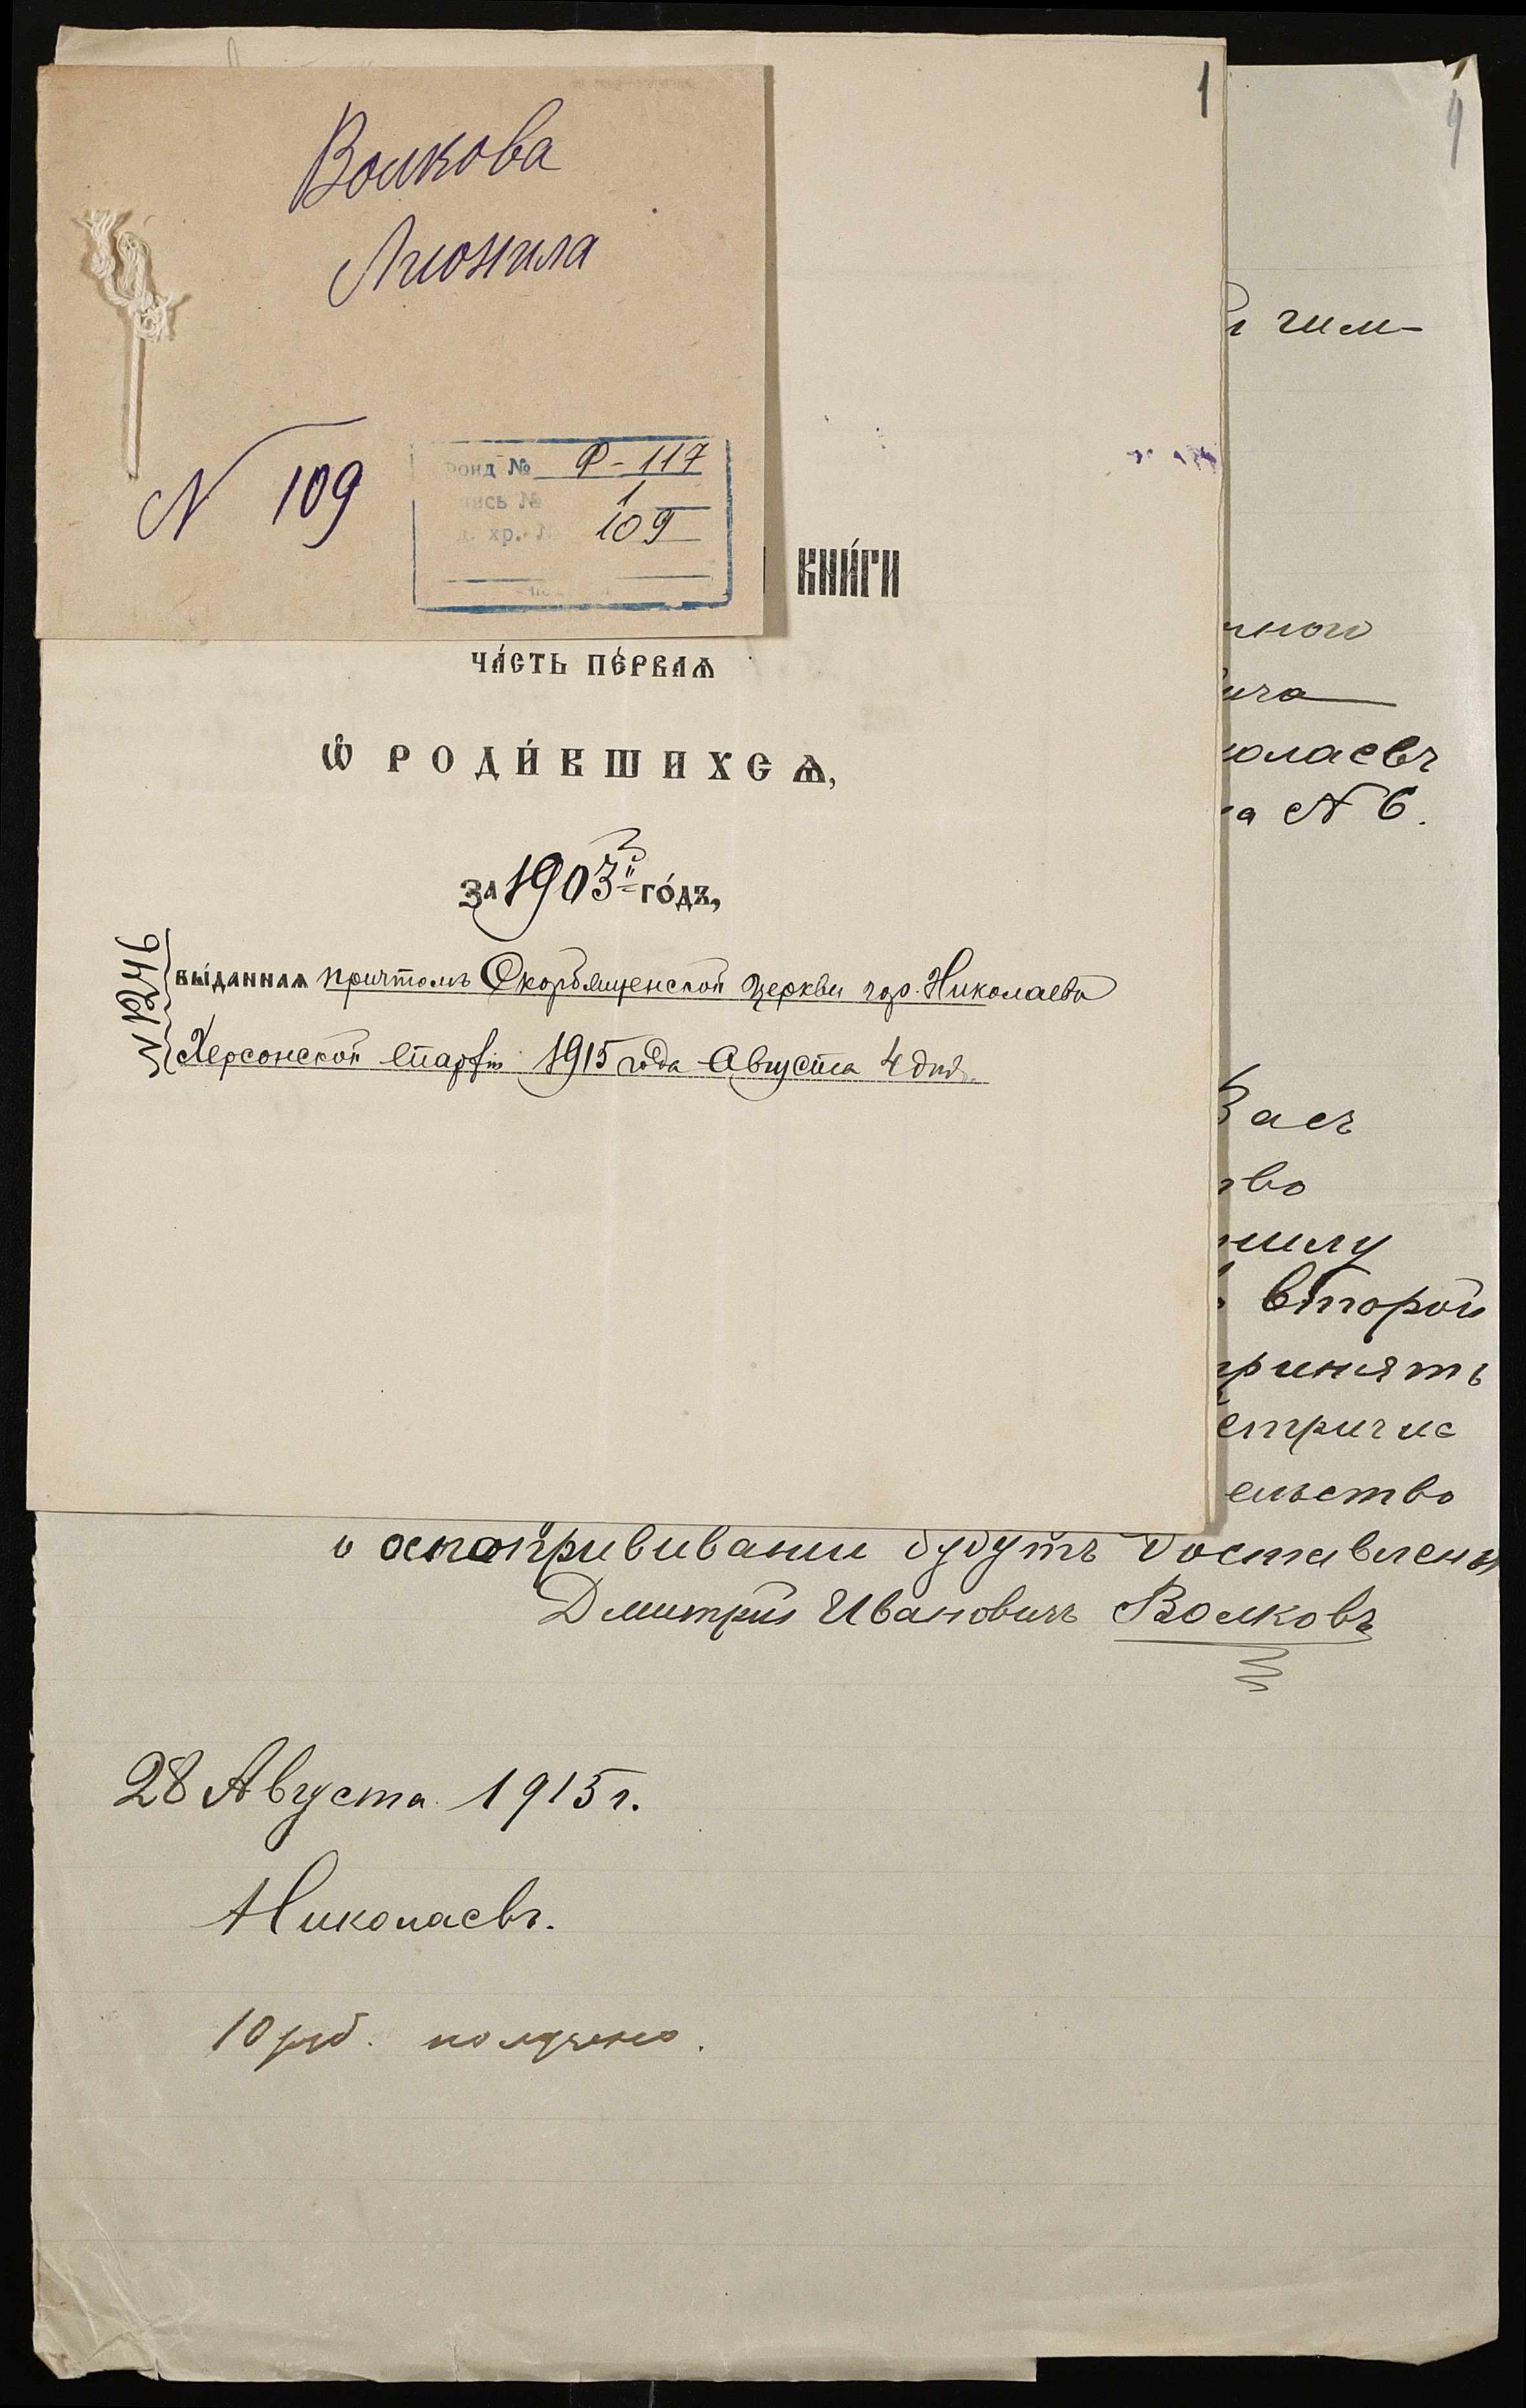 Волкова
Лионила
N 109
Фонд № Ф-117
1
109
1
9
КНИ́ГИ
ЧА́СТЬ ПЕ́РВАѦ
Ѡ҆ РОДИ́ВШИХСѦ,
за 1903й го́дъ,
N 1246
вы́даннаѧ причтомъ Скорбященской церкви гор. Николаева
Херсонской епархіи 1915 года Августа 4 дня.
гим-
чного
вича
колаевъ
N 6.
Васъ
второй
принять
метричес
о оспопрививании будутъ доставлены
Дмитрий Ивановичъ Волковъ
28 Августа 1915 г.
Николаевъ.
10 руб. получено.